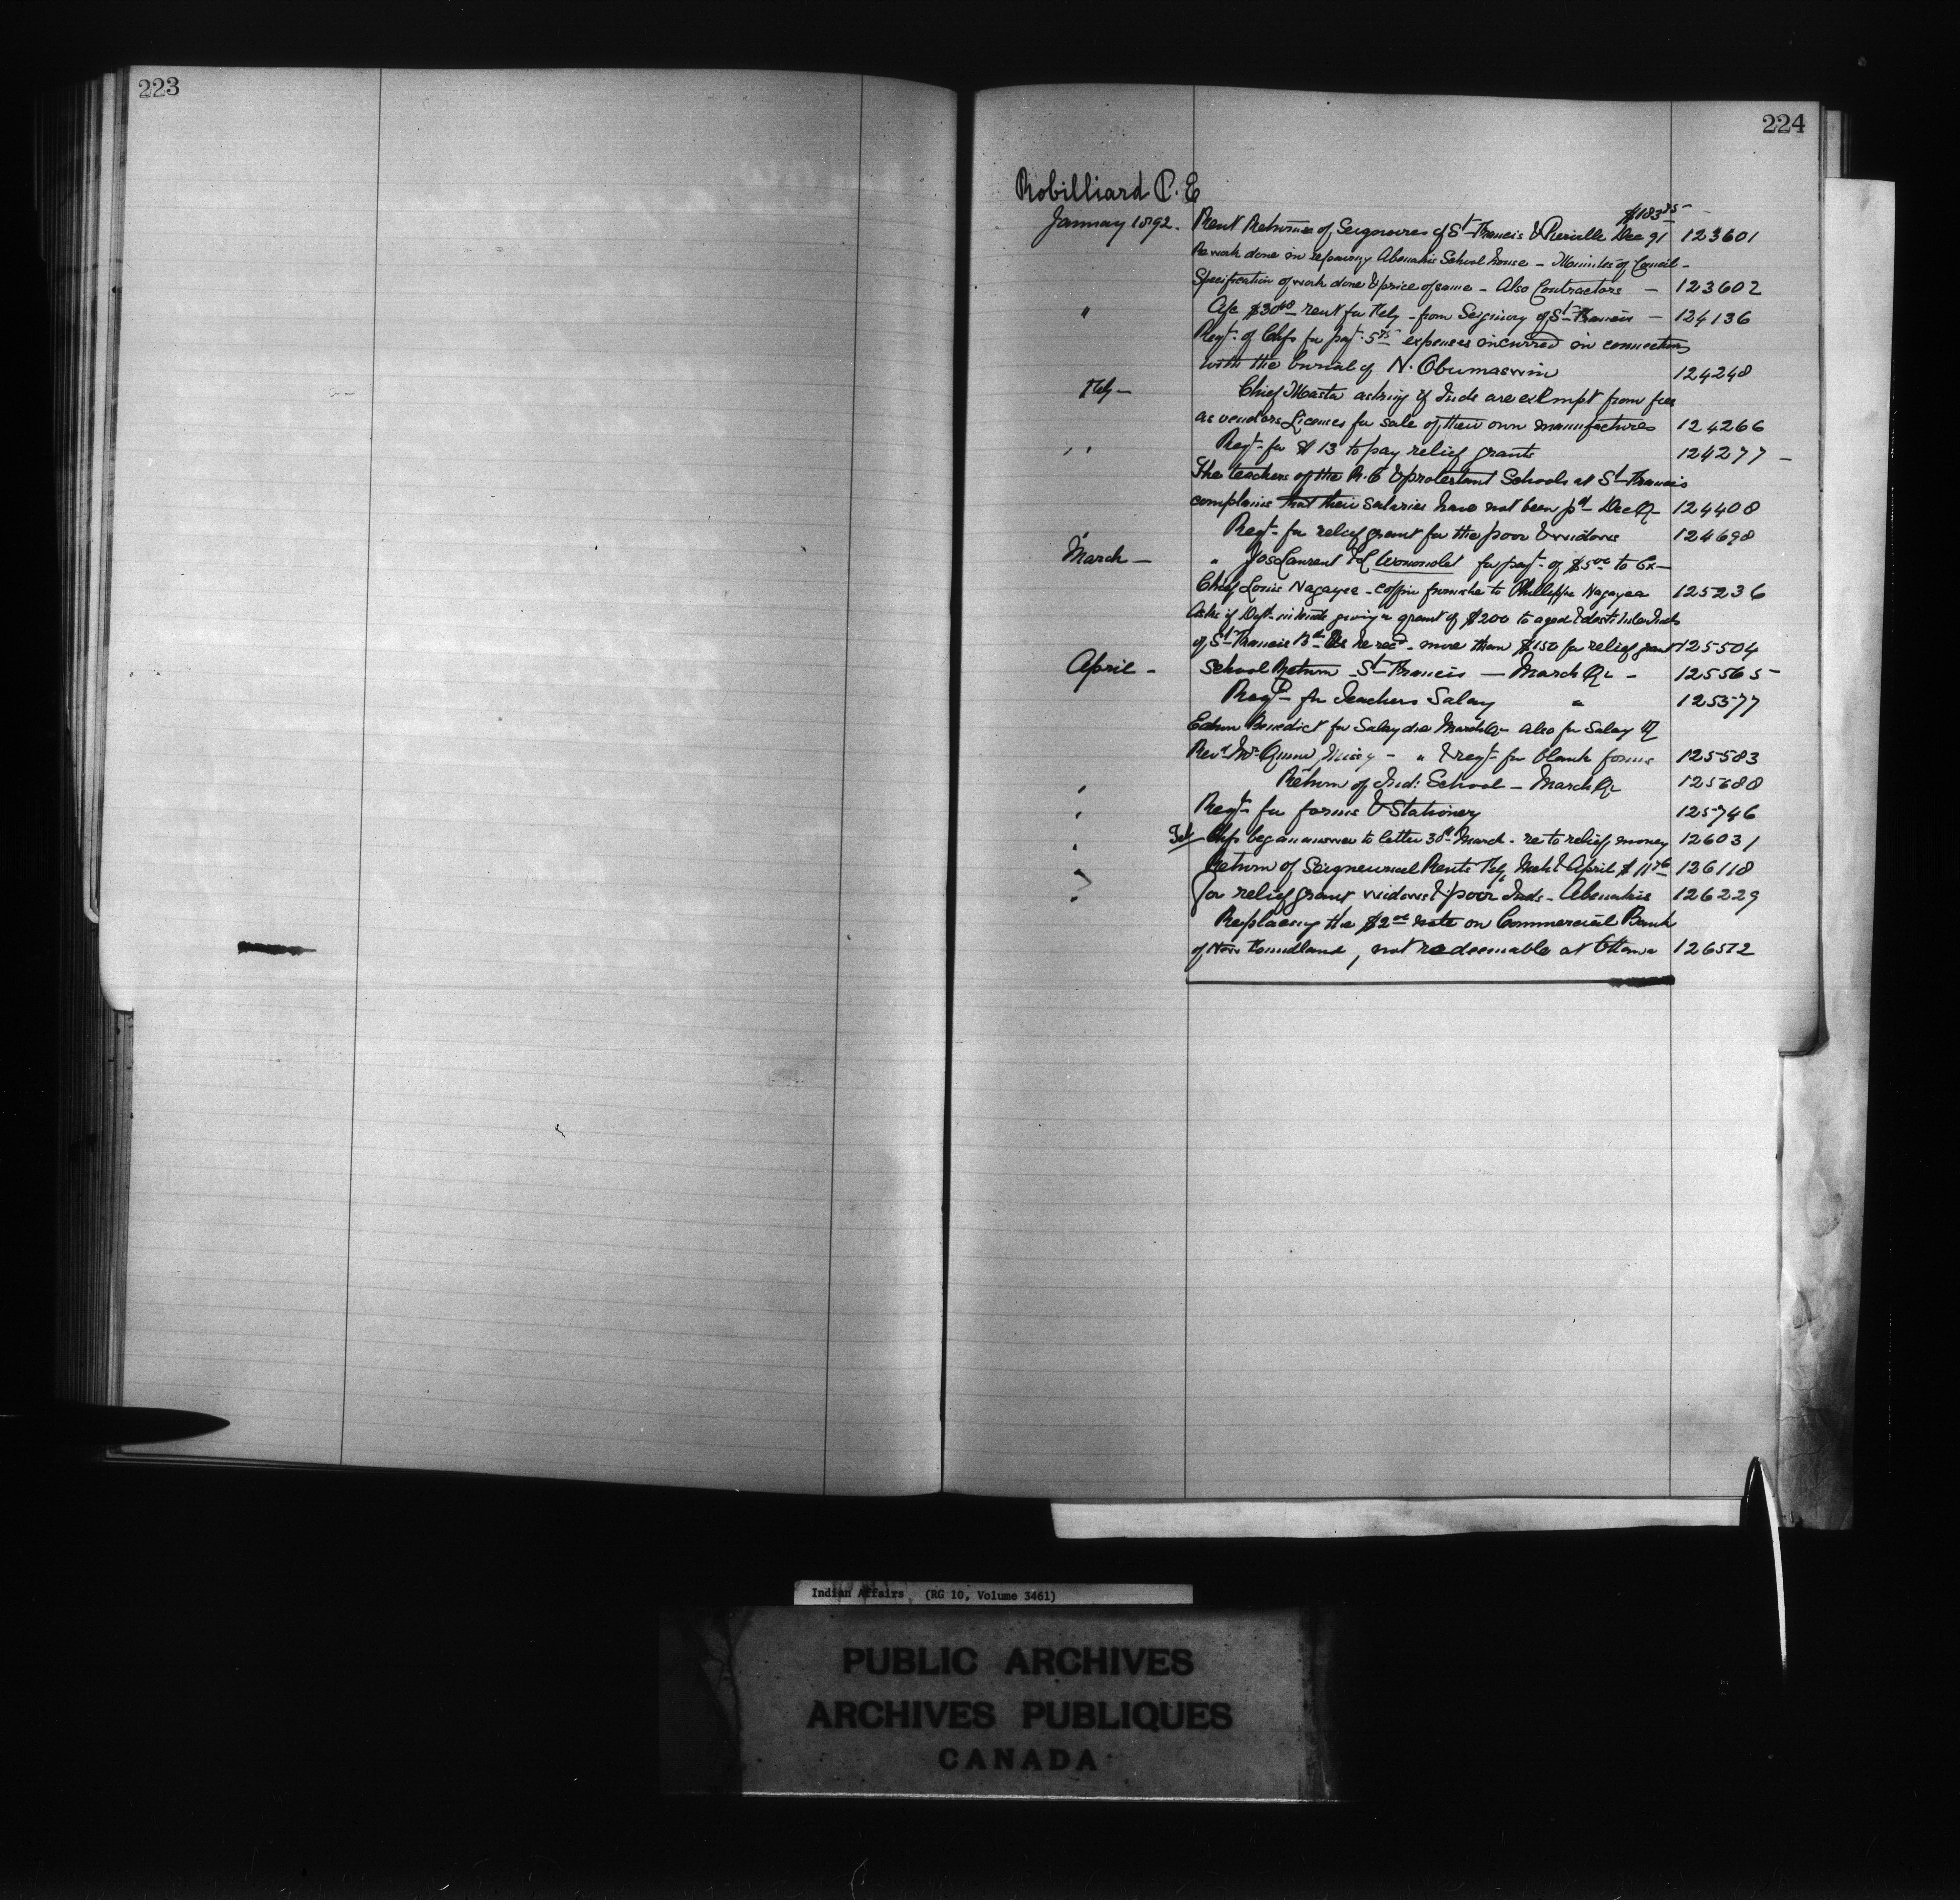 223
224
Robilliard P. E
$183 95
January 1892. Rent Returns of Seigniores of St Francis & Pierville Dec 91 123601
Re work done in repairing Abenakis School house - Minutes of Council -
Specification of work done & price of same - Also Contractors - 123602
" $30 rent for Feby - from Seigniory of St Francis - 124136
Reqt. of Chfs for payt. expenses incurred in connection
with the burial of N. Obumaswin 124248
Feby - Chief Masta asking if Inds are exempt from fees
as vendors Licenses for sale of their own manufactures 124266
" Reqt- for $13 to pay relief grants 124277 -
The teachers of the R.C & protestant Schools at St Francis
complains that their salaries have not been pd Dec Q- 124408
Reqt- for relief grant for the poor & widows 124698
March - " Jos Laurent for payt- of $5 00 to Ex-
Chief Louis Nagazoa - coffin furnishe to Phillippe Nagazoa 125236
Asks if Dept- intends giving a grant of $200 to aged & destitute Inds
of St Francis he recd- more than $150 for relief grant 125504
April - School Return - St Francis - March Qr - 125565
Reqt- for Teachers Salary " 125577
Edwin Benedict for Salary due March Q- also for Salary of
Revd Mr. - " & reqt- for blank forms 125583
' Return of Ind: School - March Qr 125688
' Reqt- for forms & Stationery 125746
' Chfs began answer to letter 30th March - re to relief money 126031
Return of Seigneurial Rents Feb, Mch & April $11 76 126118
For relief grant widows & poor Inds - Abenakis 126229
Replacing the $2 00 note on Commercial Bank
of New Foundland, not redeemable at Ottawa 126572
Indian Affairs (RG 10, Volume 3461)
PUBLIC ARCHIVES
ARCHIVES PUBLIQUES
CANADA